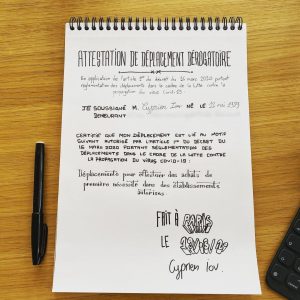 ATTESTATION DE DÉPLACEMENT DÉROGATOIRE
En application de l'article 1er du décret du 16 mars 2020 portant
réglementation des déplacements dans le cadre de la lutte contre la
propagation du virus Covid-19 :
JE SOUSSIGNÉ M. Cyprien Iov NÉ LE 12 mai 1989
DEMEURANT
CERTIFIE QUE MON DÉPLACEMENT EST LIÉ AU MOTIF
SUIVANT AUTORISÉ PAR L'ARTICLE 1ER DU DÉCRET DU
16 MARS 2020 PORTANT RÉGLEMENTATION DES
DÉPLACEMENTS DANS LE CADRE DE LA LUTTE CONTRE
LA PROPAGATION DU VIRUS COVID-19 :
Déplacements pour effectuer des achats de
première nécessité dans des établissements
autorisés
FAIT À PARIS
LE
Cyprien Iov.